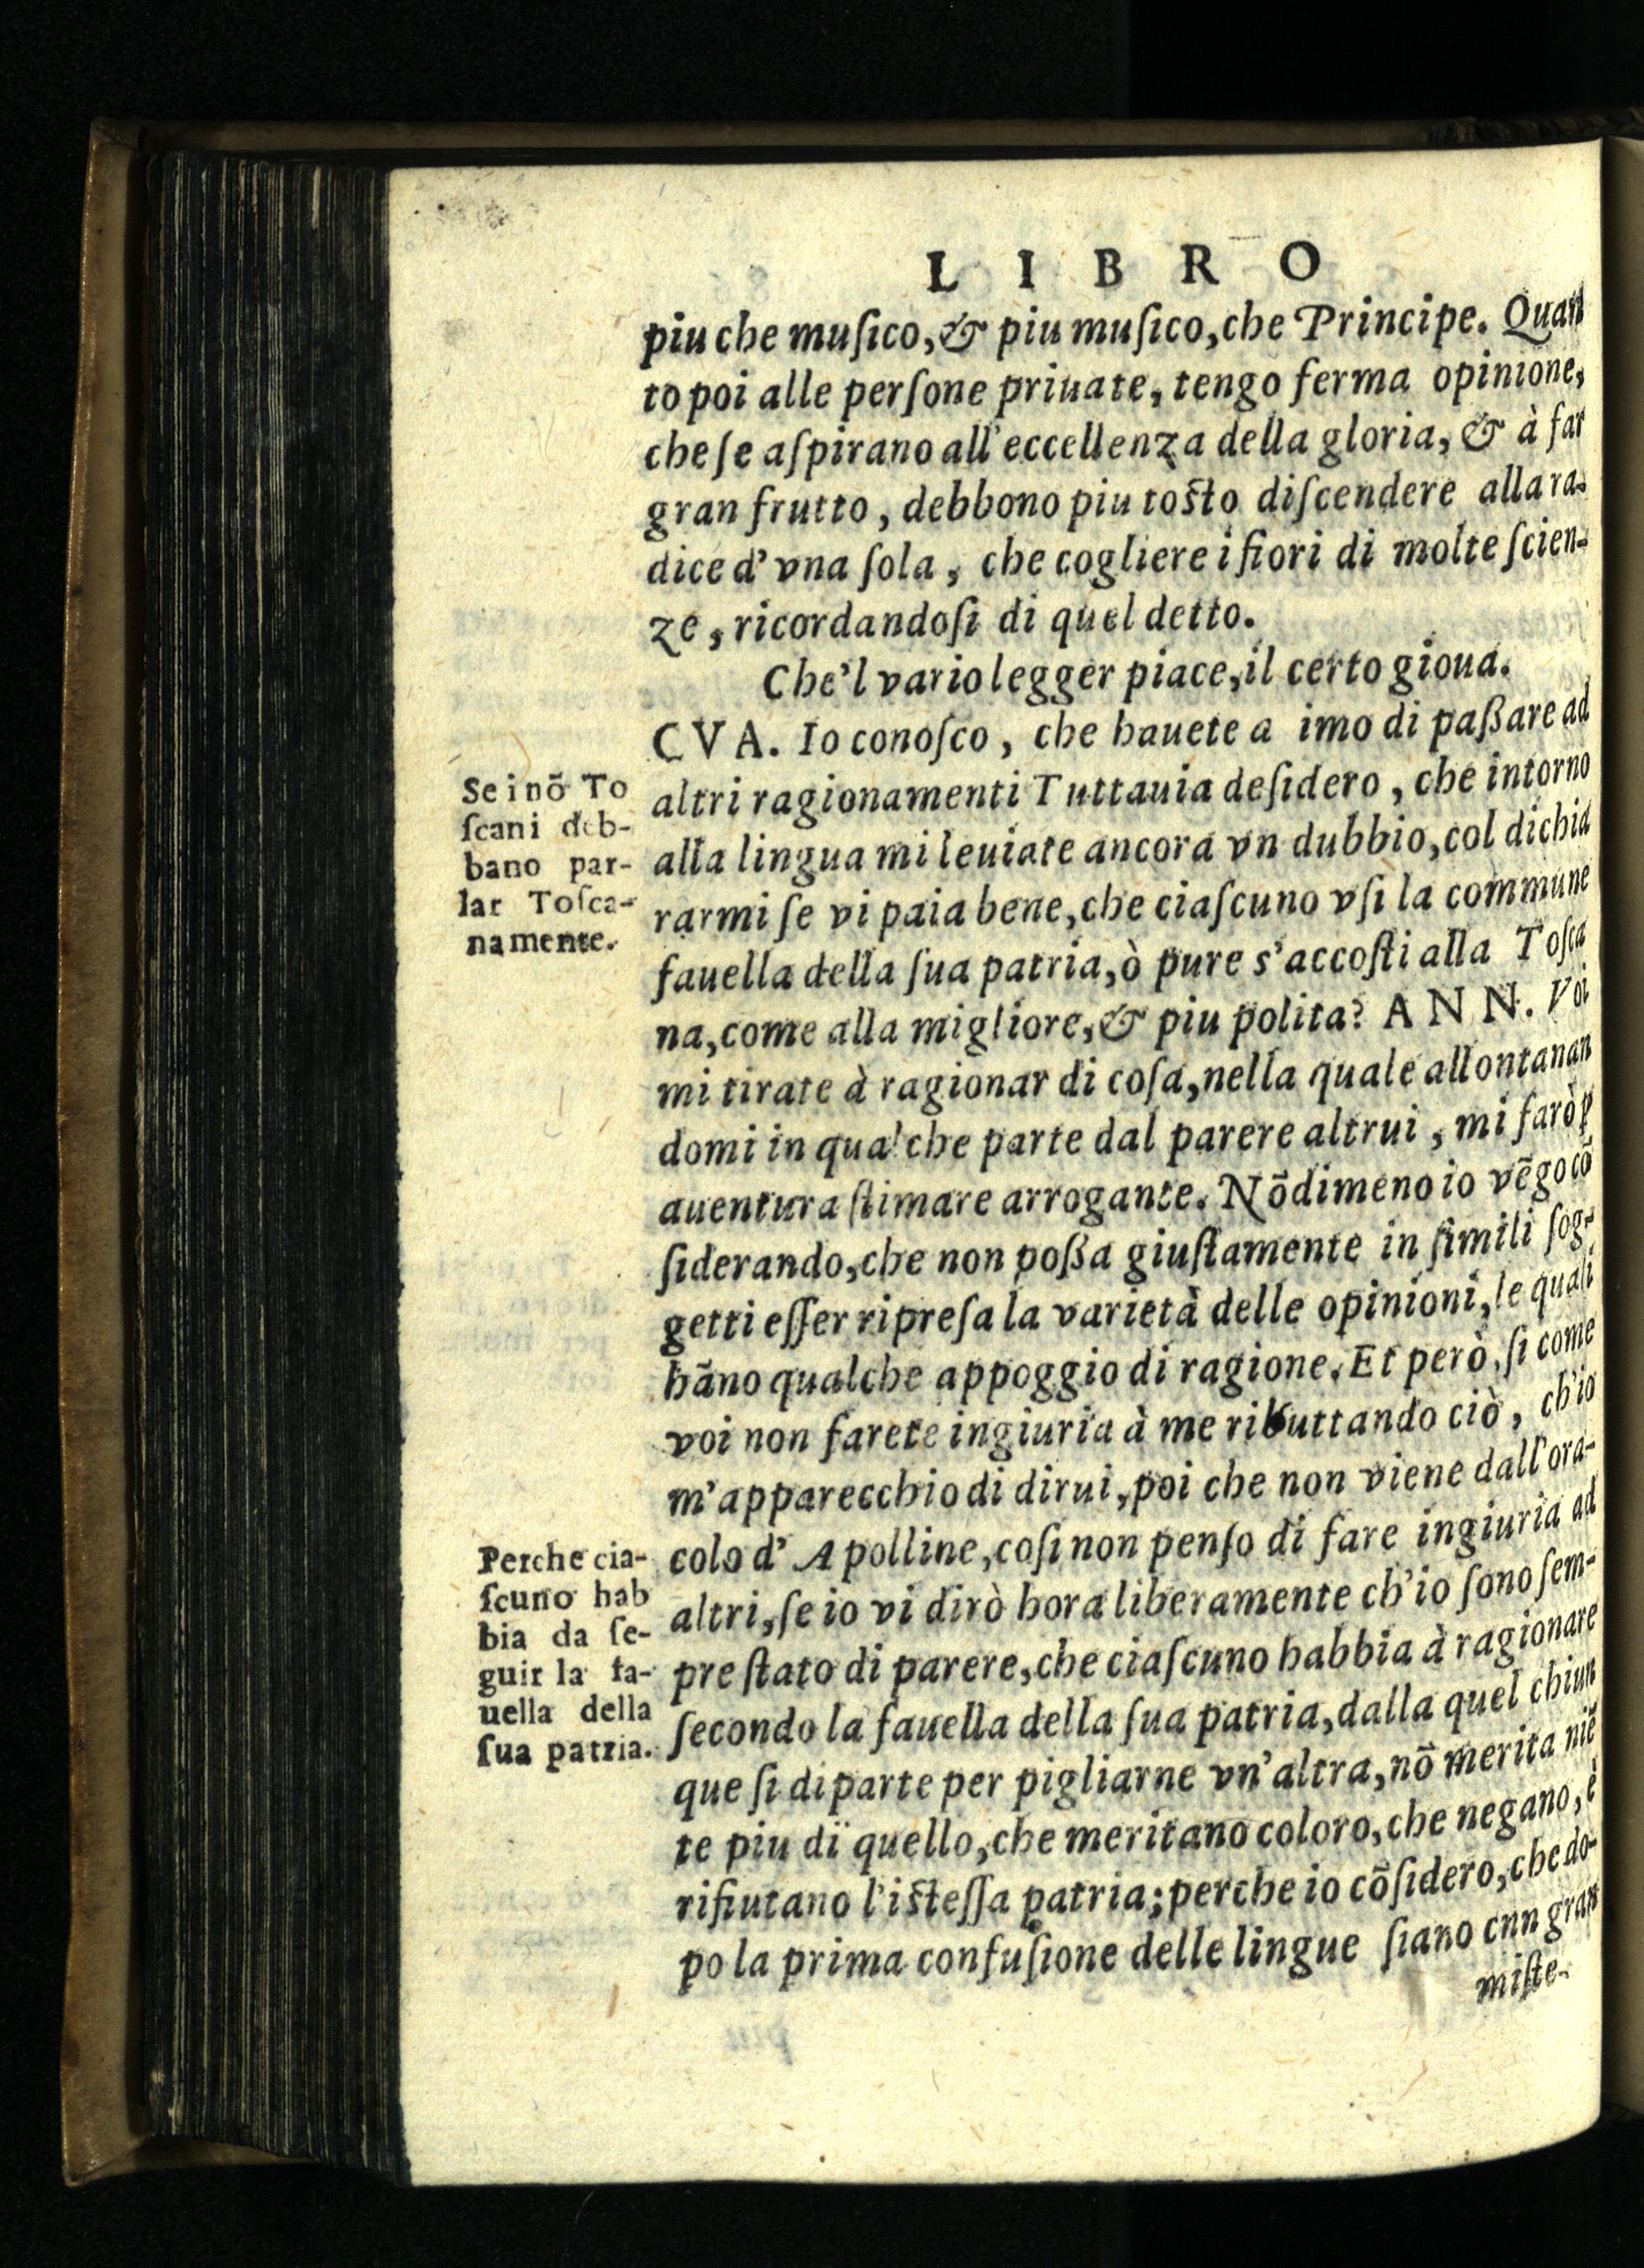 LIBRO
piu che muſico, & piu muſico, che Principe. Quan
to poi alle perſone priuate, tengo ferma opinione,
che ſe aſpirano all'eccellenza della gloria, & à far
gran frutto, debbono piu toſto diſcendere alla ra-
dice d'vna ſola, che cogliere i fiori di molte ſcien-
ze, ricordandoſi di quel detto.
Che'l vario legger piace, il certo gioua.
CVA. Io conoſco, che hauete a imo di paßare ad
altri ragionamenti Tuttauia deſidero, che intorno
alla lingua mi leuiate ancora vn dubbio, col dichia
rarmi ſe vi paia bene, che ciaſcuno vſi la commune
fauella della ſua patria, ò pure s'accoſti alla Toſca
na, come alla migliore, & piu polita? ANN. Voi
mi tirate à ragionar di coſa, nella quale allontanan
domi in qualche parte dal parere altrui, mi farò p
auentura ſtimare arrogante. Nõdimeno io vẽgo cõ
ſiderando, che non poßa giuſtamente in ſimili ſog-
getti eſſer ripreſa la varietà delle opinioni, le quali
hãno qualche appoggio di ragione. Et però, ſi come
voi non farete ingiuria à me ributtando ciò, ch'io
m'apparecchio di dirui, poi che non viene dall'ora-
colo d'Apolline, coſi non penſo di fare ingiuria ad
altri, ſe io vi dirò hora liberamente ch'io ſono ſem-
pre ſtato di parere, che ciaſcuno habbia à ragionare
ſecondo la fauella della ſua patria, dalla quel chiun
que ſi diparte per pigliarne vn'altra, nõ merita niẽ
te piu di quello, che meritano coloro, che negano, è
rifiutano l'iſteſſa patria; perche io cõſidero, che do-
po la prima confuſione delle lingue ſiano cnn gran
miſte-
Se i nõ To
ſcani deb-
bano par-
lar Toſca-
namente.
Perche cia-
ſcuno hab
bia da ſe-
guir la fa-
uella della
ſua patria.